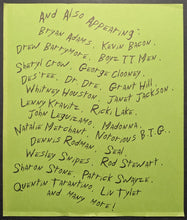 And Also Appearing:
Bryan Adams, Kevin Bacon,
Drew Barrymore, Boyz II Men
Sheryl Crow, George Clooney,
Des'ree, Dr. Dre, Grant Hill,
Whitney Houston, Janet Jackson,
Lenny Kravitz, Ricki Lake,
John Leguizamo, Madonna,
Natalie Merchant, Notorious B.I.G.,
Dennis Rodman, Seal,
Wesley Snipes, Rod Stewart,
Sharon Stone, Patrick Swayze,
Quentin Tarantino, Liv Tyler
and many more!